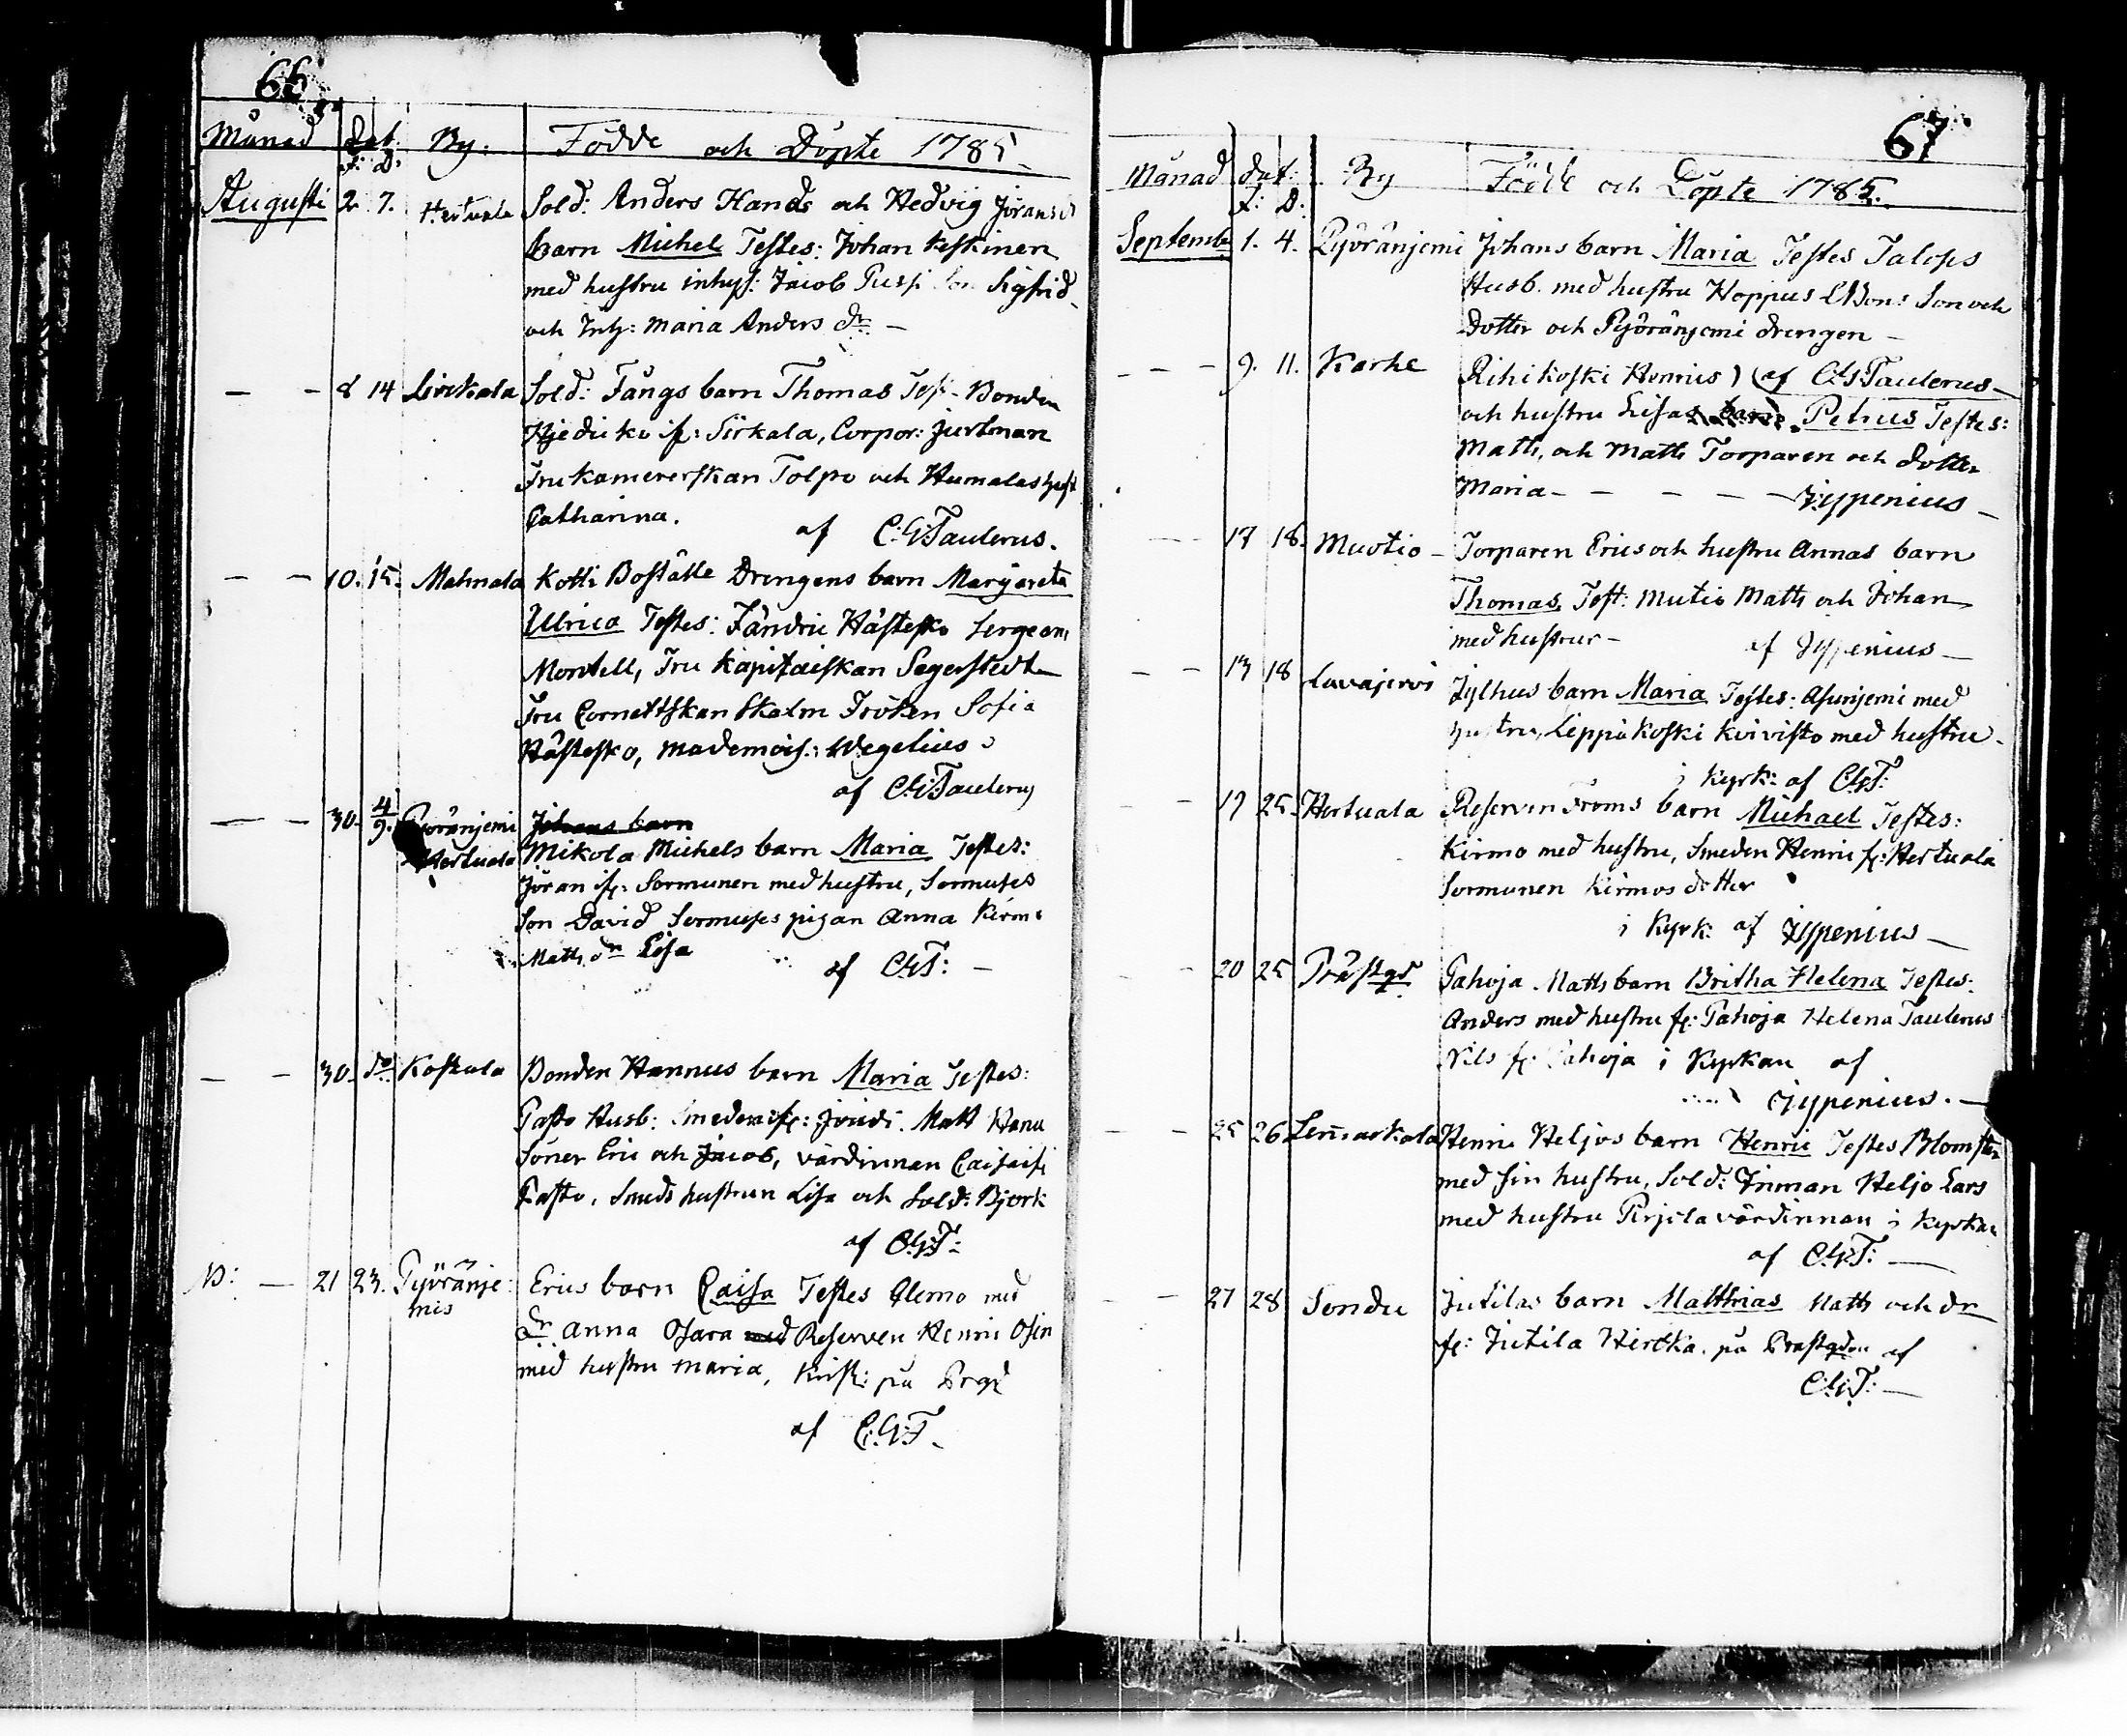 66
Månad dat. By: Födde och Döpte 1785
F: D:
Augusti 2. 7. Hertuala Sold: Anders Hands och Hedvig Jörans d
barn Michel Testes: Johan Keskinen
med hustru inhys: Jacob Pussi Son Sigfrid
och Inh: Maria Anders dr —
— — 8 14 Sirkala Sold: Fångs barn Thomas Test- Bonden
if: Sirkala, Corpor: Jurtman
Fru Kamererskan Tolpo och Humalas hust
Catharina. af C:G:Taulerus.
— — 10. 15. Mahnala Kotti Boställe Drengens barn Margareta
Ulrica Testes: Fändric Hästesko Sergeant
Montell, Fru Kapitaiskan Segerstedt
Fru Cornettskan Skalm Fröken Sofia
Hästesko, Mademois: Wegelius
af C:G:Taulerus
— — 30. 4/9. Pyöränjemi Johans barn
Hertuala Mikola Michels barn Maria Testes:
Jöran if: Sormunen med hustru, Sormuses
Son David Sormuses pigan Anna Kirmo
Matts dr Lisa af C:G:T: —
— — 30. do Koskala Bonden Hannus barn Maria Testes:
Pasto Husb: Smeden if: Matt Hanu
Söner Eric och Jacob, värdinnan Caisa if:
Pasto, Smeds hustrun Lisa och Sold: Björk
af C:G:T:
N: — 21 23. Pyöränje:
mis Erics barn Caisa Testes Alemo med
Dr Anna Osara med Reserven Henric Osin
med hustru Maria, Krist: på Prgd
af C:G:T.
67
Månad dat: By Födde och Döpte 1785.
F: D:
Septembr 1. 4. Pyöränjemi Johans barn Maria Testes Talops
Husb. med hustru Hoppus Son och
Dotter och Pyöränjemi drengen —
— — 9. 11. Karhe Rihikoski Henrics) (af C:G:Taulerus —
och hustru Lisas barn Petrus Testes:
Matts, och Matts Torparen och dotter
Maria — — — — Zyppenius —
— 17 18. Muotio — Torparen Erics och hustru Annas barn
Thomas, Test: Mutio Matts och Johan
med hustrur — af Zyppenius —
— — 13 18 Lavajervi Jylhus barn Maria Testes: Asunjemi med
hustru, Leppäkoski Kivisto med hustru —
i Kyrk: af C:G:T:
— — 19 25. Hertuala Reserven Froms barn Michael Testes:
Kirmo med hustru, Smeden Henric if: Hertuala
Sormunen Kirmos dotter
i Kyrk: af Zyppenius —
— — 20 25 Prästgd Pahoja Matts barn Britha Helena Testes:
Anders med hustru if: Pahoja Helena Taulerus
Nils if: Pahoja i Kyrkan af
Zyppenius. —
— — 25 26 Henric Heljos barn Henric Testes Blomster
med sin hustru, Sold: Inman Heljo Lars
med hustru Pirjela värdinnan i Kyrkan
af C:G:T: —
— — 27 28 Sondu Jutilas barn Matthias Matts och dr
if: Jutila Hirtka. på Prästgdn af
C:G:T: —